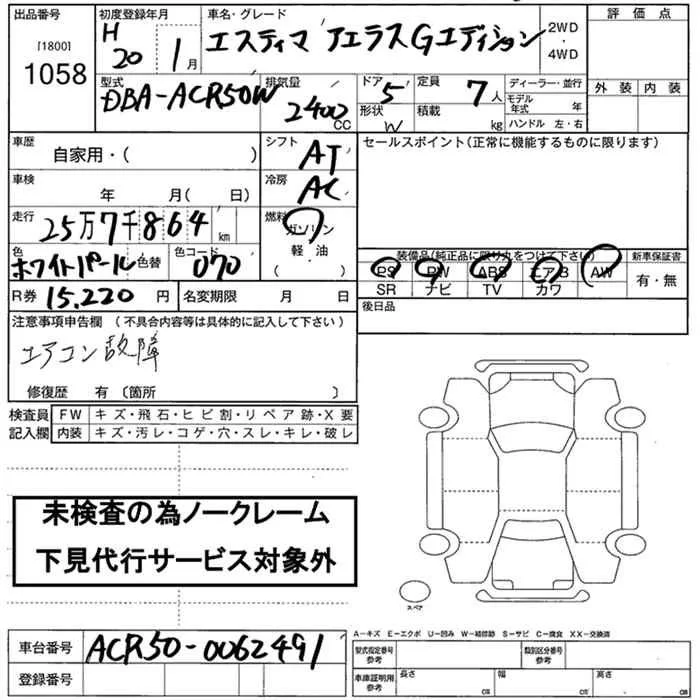 出品番号 初度登録年月 車名・グレード 評価点
[1800] 1058 H 20 1月 エスティマ アエラスGエディション 2WD・4WD
外装 内装
型式 DBA-ACR50W 排気量 2400 CC ドア 5 形状 W 定員 7人 積載 kg ディーラー・並行
モデル年式 年
ハンドル 左・右
車歴 自家用・( ) シフト AT セールスポイント(正常に機能するものに限ります)
車検 年 月( 日) 冷房 AC
走行 25万7千864km 燃料 ガソリン・軽油・( )
色 ホワイトパール 色替 色コード 070
装備品(純正品に限り丸をつけて下さい) 新車保証書
PS PW ABS エアB AW 有・無
SR ナビ TV カワ
R券 15,220円 名変期限 月 日 後日品
注意事項申告欄 (不具合内容等は具体的に記入して下さい)
エアコン故障
修復歴 有 〔箇所 〕
検査員記入欄 FW キズ・飛石・ヒビ割・リペア跡・X要
内装 キズ・汚レ・コゲ・穴・スレ・キレ・破レ
未検査の為ノークレーム
下見代行サービス対象外
スペア
A-キズ E-エクボ U-凹み W-補修跡 S-サビ C-腐食 XX-交換済
車台番号 ACR50-0062491 型式指定番号 参考 類別区分番号 参考
登録番号 車庫証明用 参考 長さ cm 幅 cm 高さ cm